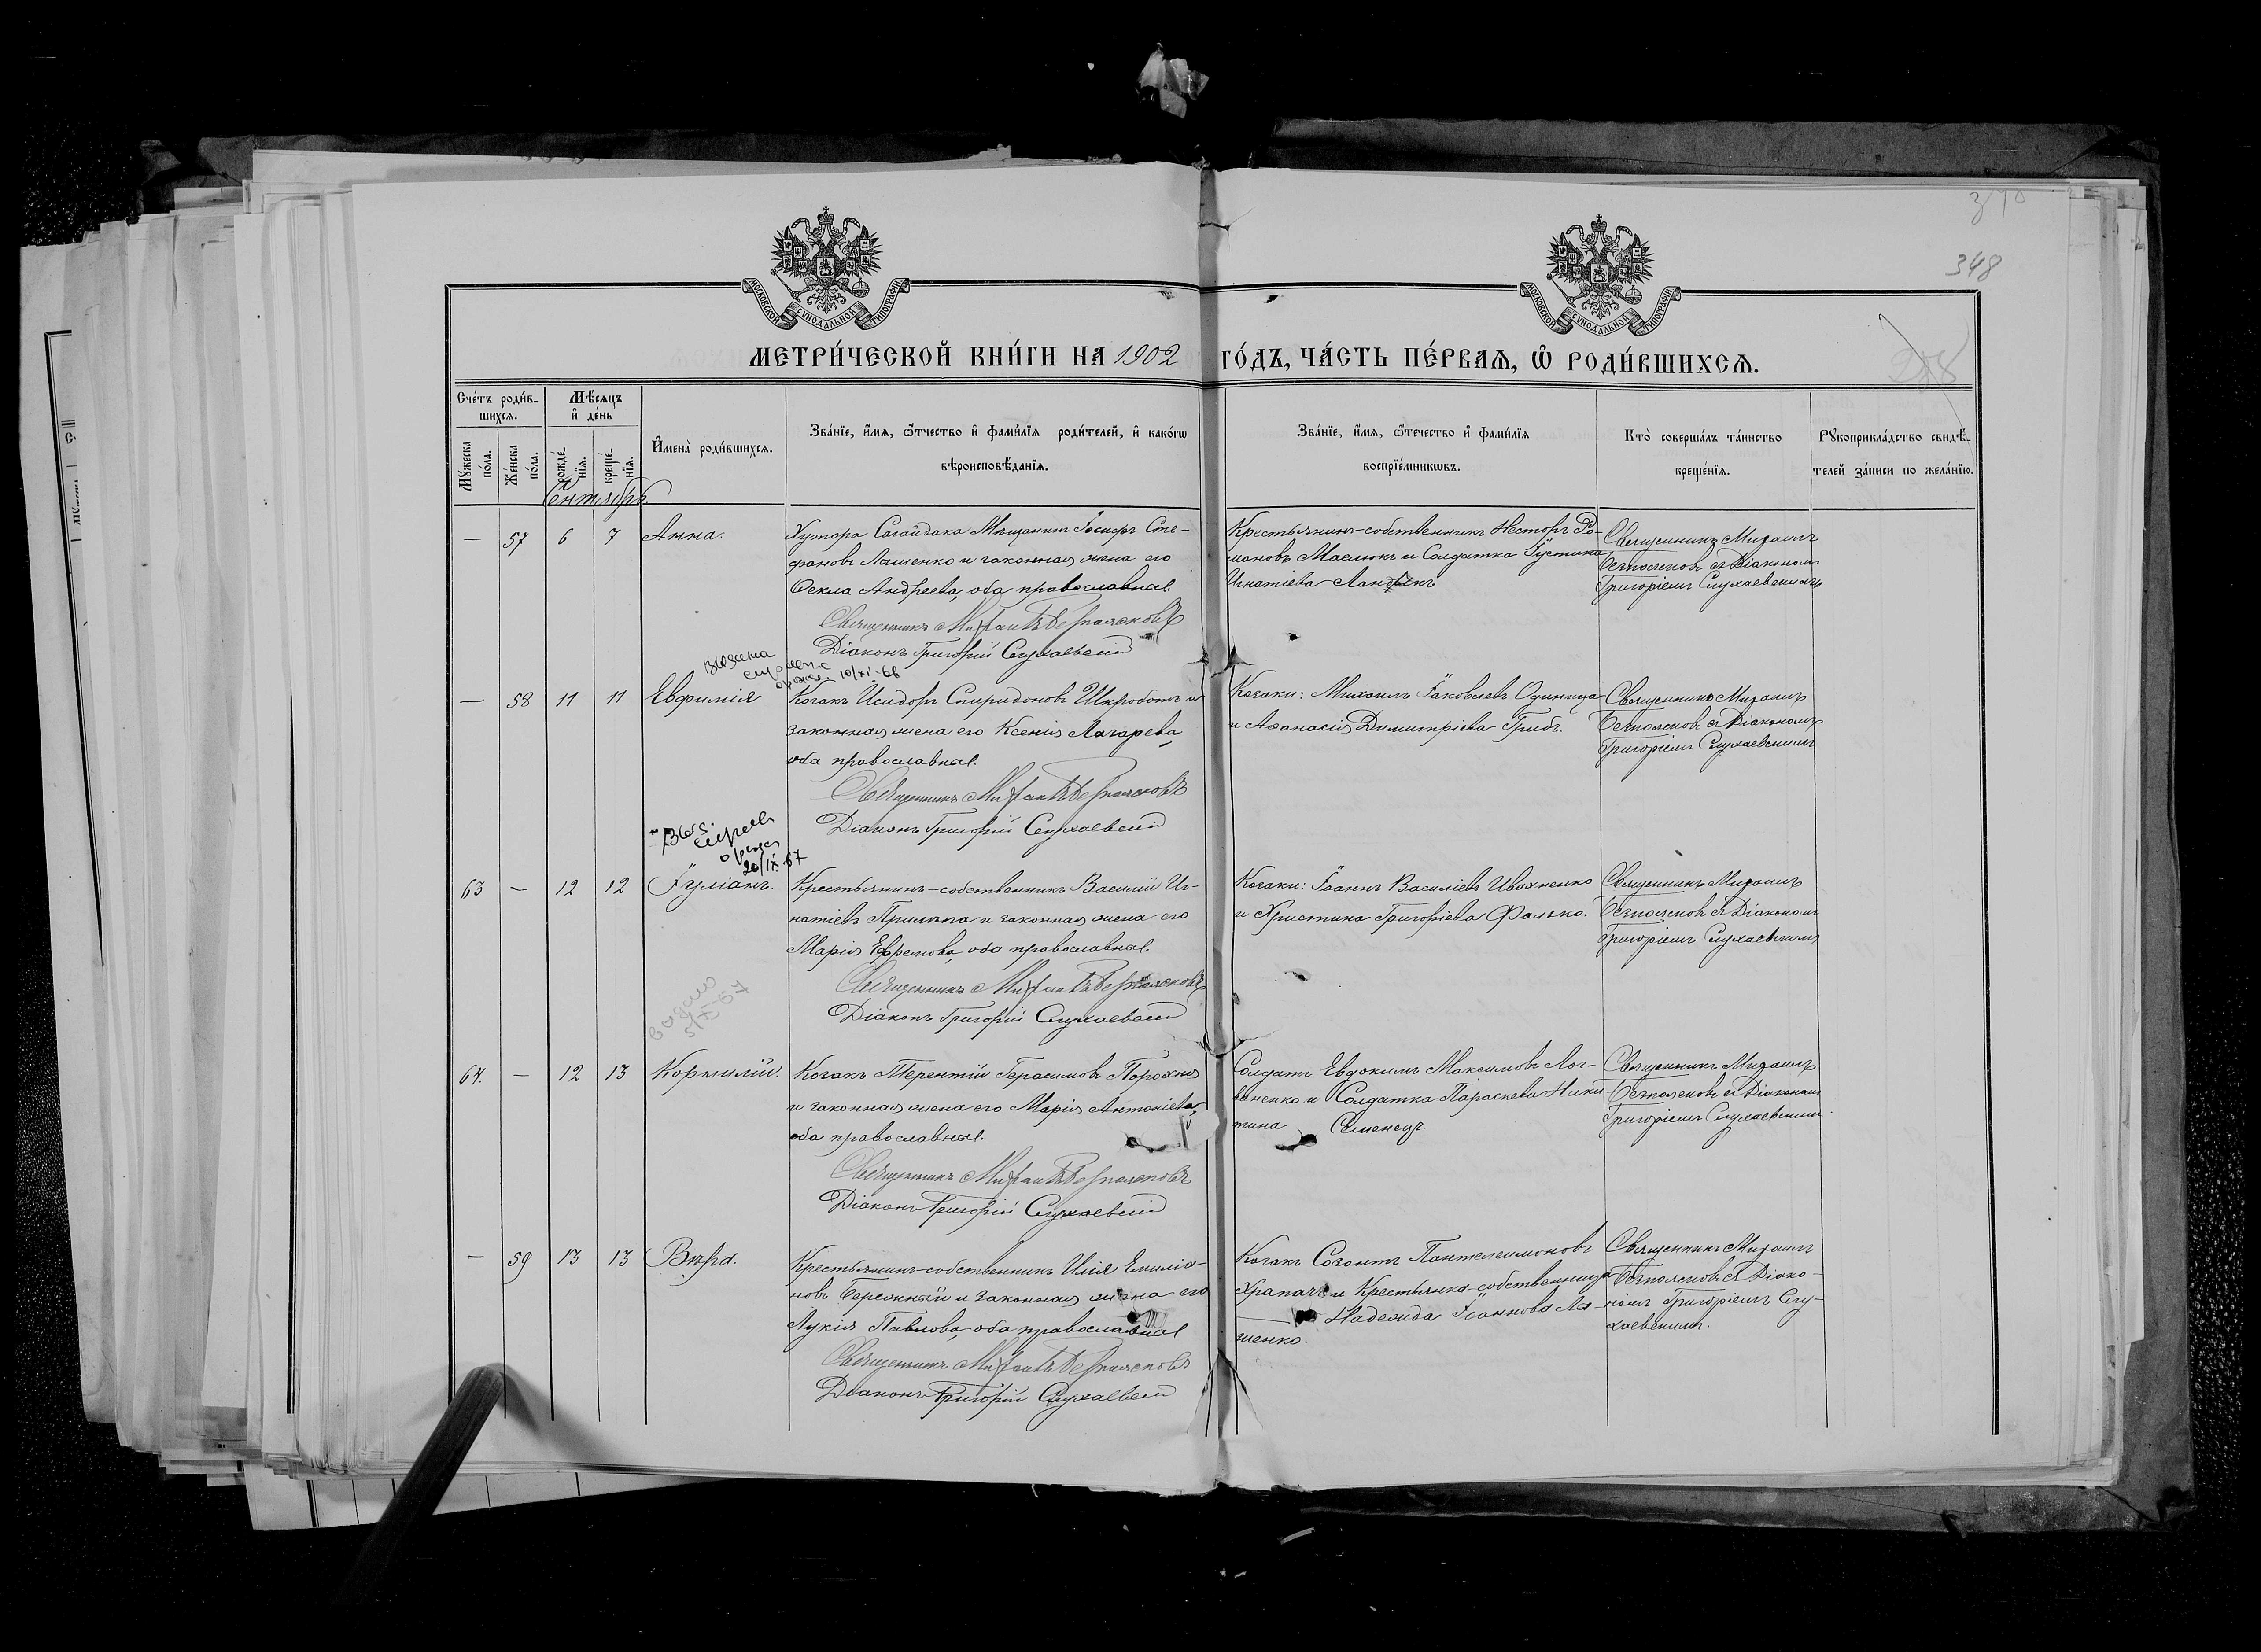 348
МОСКОВСКОЙ СУНОДАЛЬНОЙ ТИПОГРАФІИ
МОСКОВСКОЙ СУНОДАЛЬНОЙ ТИПОГРАФІИ
МЕТРИ́ЧЕСКОЙ КНИ́ГИ НА 1902 ГО́ДЪ, ЧА́СТЬ ПЕ́РВАѦ, Ѡ РОДИ́ВШИХСѦ.
Сче́тъ роди́в-
шихсѧ.
Мѣ́сѧцъ
и҆ де́нь
Мꙋ́жеска
по́ла.
Же́нска
по́ла.
рожде́-
нїѧ.
креще́-
нїѧ.
И҆мена̀ роди́вшихсѧ.
Зва́нїе, и҆́мѧ, ѻ҆́тчество и҆ фами́лїѧ роди́телей, и҆ како́гѡ
вѣроисповѣ́данїѧ.
Зва́нїе, и҆́мѧ, ѻ҆́течество и҆ фами́лїѧ
воспрїе́мникѡвъ.
Кто̀ соверша́лъ та́инство
креще́нїѧ.
Рꙋкоприкла́дство свидѣ́-
телей за́писи по жела́нїю.
Сентябрь.
— 57 6 7 Анна.
Хутора Сагайдака Мѣщанинъ Іосифъ Сте-
фановъ Лашенко и законная жена его
Ѳекла Андреева, оба православные.
Священникъ Михаилъ Безпоясковъ
Діаконъ Григорій Слухаевскій
Крестьянинъ-собственникъ Несторъ Ро-
мановъ Маслюкъ и Солдатка Іустина
Игнатіева
Священникъ Михаилъ
Безпоясковъ съ Діакономъ
Григоріемъ Слухаевскимъ
10/XI-66
— 58 11 11 Евфимія
Козакъ Исидоръ Спиридоновъ Шкроботъ и
законная жена его Ксенія Лазарева,
оба православные.
Священникъ Михаилъ Безпоясковъ
Діаконъ Григорій Слухаевскій
Козаки: Михаилъ Іаковлевъ Одиница
и Аѳанасія Димитріева Грибъ.
Священникъ Михаилъ
Безпоясковъ съ Діакономъ
Григоріемъ Слухаевскимъ
20/IX-67
63 — 12 12 Іуліанъ.
Крестьянинъ-собственникъ Василій Иг-
натіевъ и законная жена его
Марія Ефремова, оба православные.
Священникъ Михаилъ Безпоясковъ
Діаконъ Григорій Слухаевскій
Козаки: Іоаннъ Василіевъ Ивахненко
и Христина Григоріева Фалько.
Священникъ Михаилъ
Безпоясковъ съ Діакономъ
Григоріемъ Слухаевскимъ
видано
64. — 12 13 Корнилій.
Козакъ Терентій Герасимовъ Порохня
и законная жена его Марія Антоніева,
оба православные.
Священникъ Михаилъ Безпоясковъ
Діаконъ Григорій Слухаевскій
Солдатъ Евдокимъ Максимовъ Лог-
виненко и Солдатка Параскева Ники-
тина Семенецъ.
Священникъ Михаилъ
Безпоясковъ съ Діакономъ
Григоріемъ Слухаевскимъ.
— 59 13 13 Вѣра.
Крестьянинъ-собственникъ Илія Емиліа-
новъ Бережный и законная жена его
Лукія Павлова, оба православные
Священникъ Михаилъ Безпоясковъ
Діаконъ Григорій Слухаевскій
Козакъ Созонтъ Пантелеимоновъ
Храпачъ и Крестьянка-собственница
Надежда Іоаннова Ля-
шенко.
Священникъ Михаилъ
Безпоясковъ съ Діако-
номъ Григоріемъ Слу-
хаевскимъ.